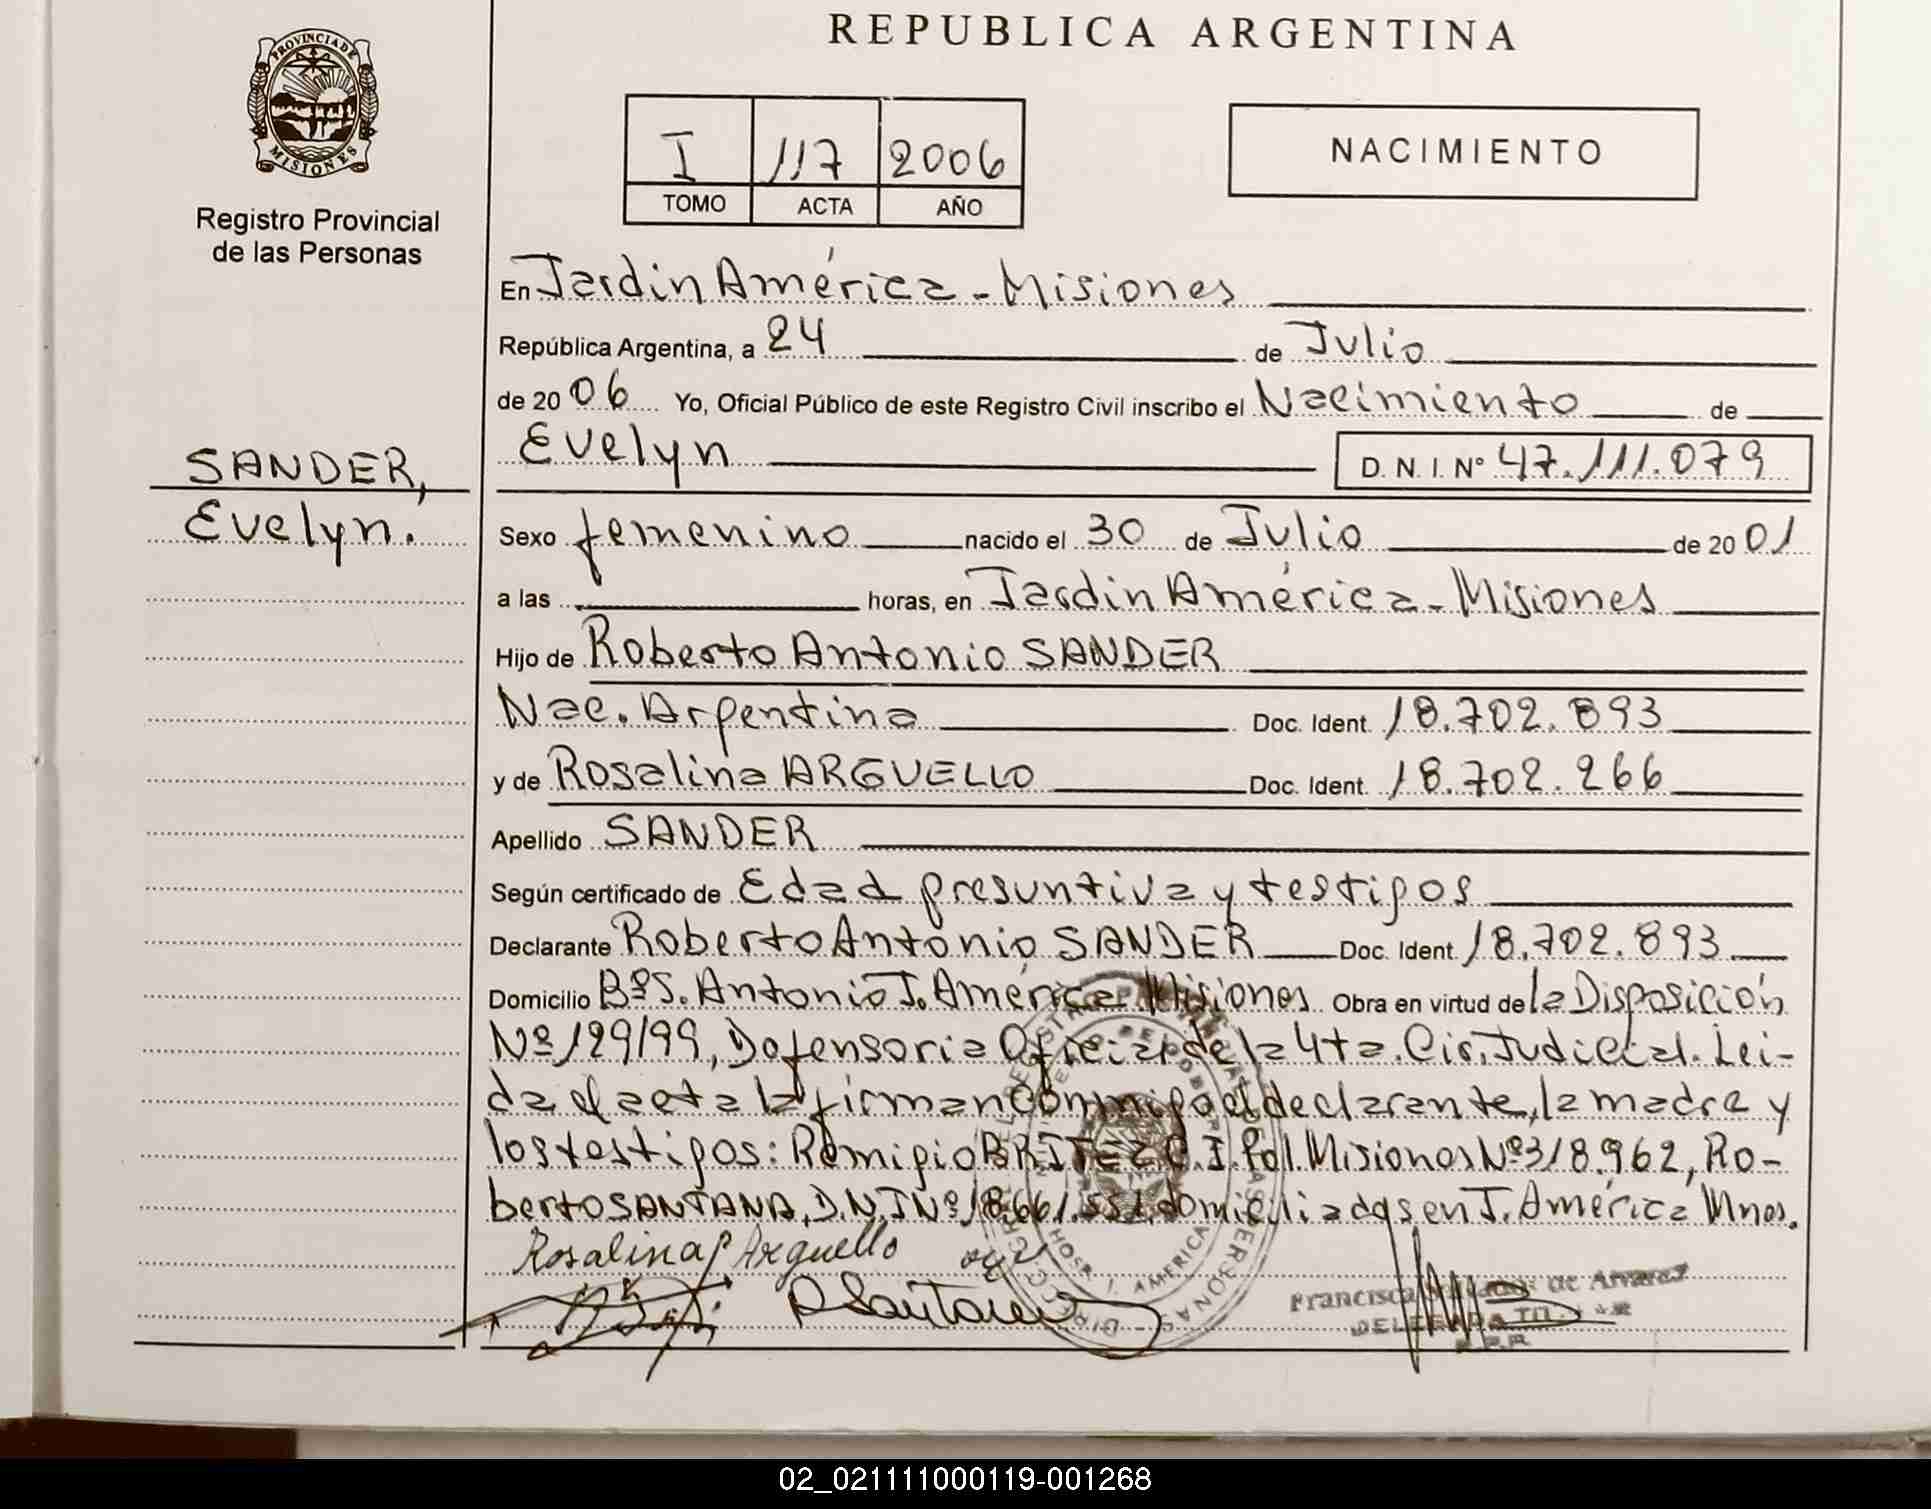 REPUBLICA ARGENTINA
PROVINCIA DE
MISIONES
Registro Provincial
de las Personas
I 117 2006
TOMO ACTA AÑO
NACIMIENTO
En Jardin América - Misiones
República Argentina, a 24 de Julio
de 2006 Yo, Oficial Público de este Registro Civil inscribo el Nacimiento de
Evelyn D. N. I. Nº 47.111.079
SANDER,
Evelyn.
Sexo femenino nacido el 30 de Julio de 2001
a las horas, en Jardin América - Misiones
Hijo de Roberto Antonio SANDER
Nac. Argentina Doc. Ident. 18.702.893
y de Rosalina ARGUELLO Doc. Ident. 18.702.266
Apellido SANDER
Según certificado de Edad presuntiva y testigos
Declarante Roberto Antonio SANDER Doc. Ident. 18.702.893
Domicilio Bº S. Antonio J. América Misiones Obra en virtud de la Disposición
Nº 129/99, Defensoria Oficial de la 4ta. Cir. Judicial. Lei-
da el acta la firman conmigo el declarante, la madre y
los testigos: Remigio BRITEZ C.I. Pol. Misiones Nº 318.962, Ro-
berto SANTANA, D.N.I Nº 18.661.551, domiciliados en J. América Mnes.
Rosalina Arguello
HOSP. J. AMERICA
Francisca de Alvarez
DELEGADA
R.P.P.
02_021111000119-001268